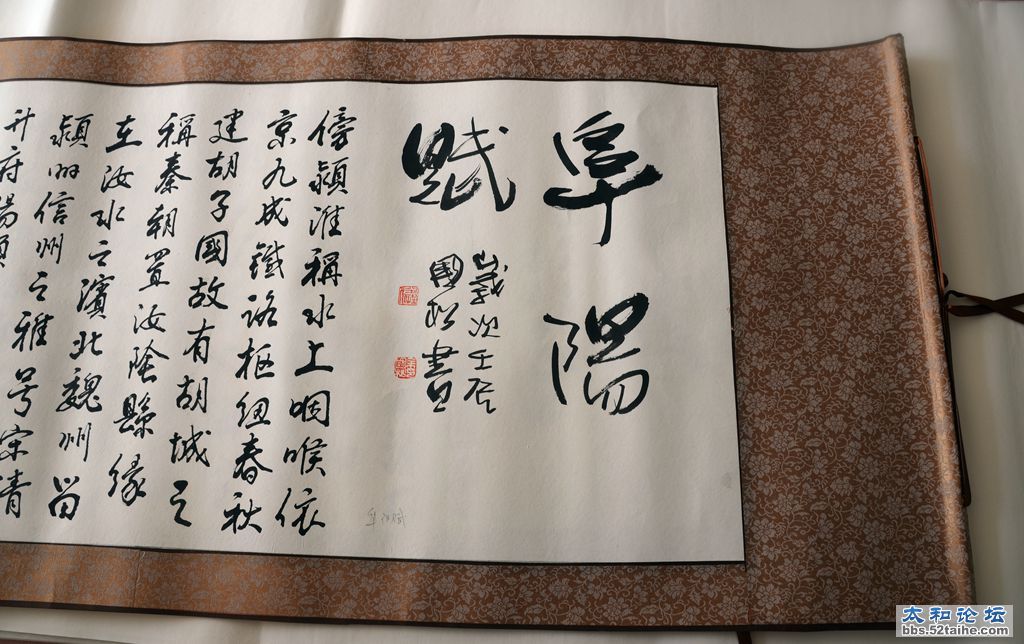 阜陽
賦
歲次壬辰
國松書
傍潁淮稱水上咽喉依
京九成鐵路樞紐春秋
建胡子國故有胡城之
稱秦朝置汝陰縣緣
在汝水之濱北魏州留
潁州信州之雅号宋清
升府
阜阳赋
太和论坛
bbs.52taihe.com